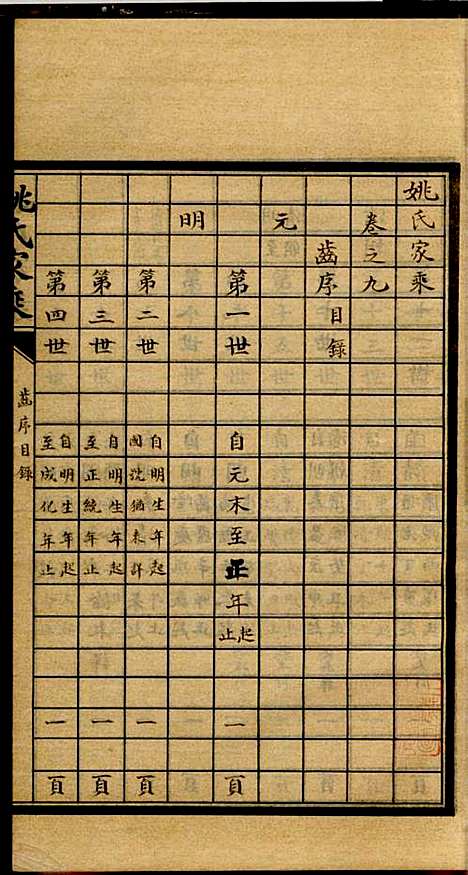 姚氏家乘
卷之九
齒序目錄
元
第一世 自元末至正年起止 一頁
明
第二世 自明生年起 猶未詳 一頁
第三世 自明生年起至正統年止 一頁
第四世 自明生年起至成化年止 一頁
姚氏家乘 齒序目錄